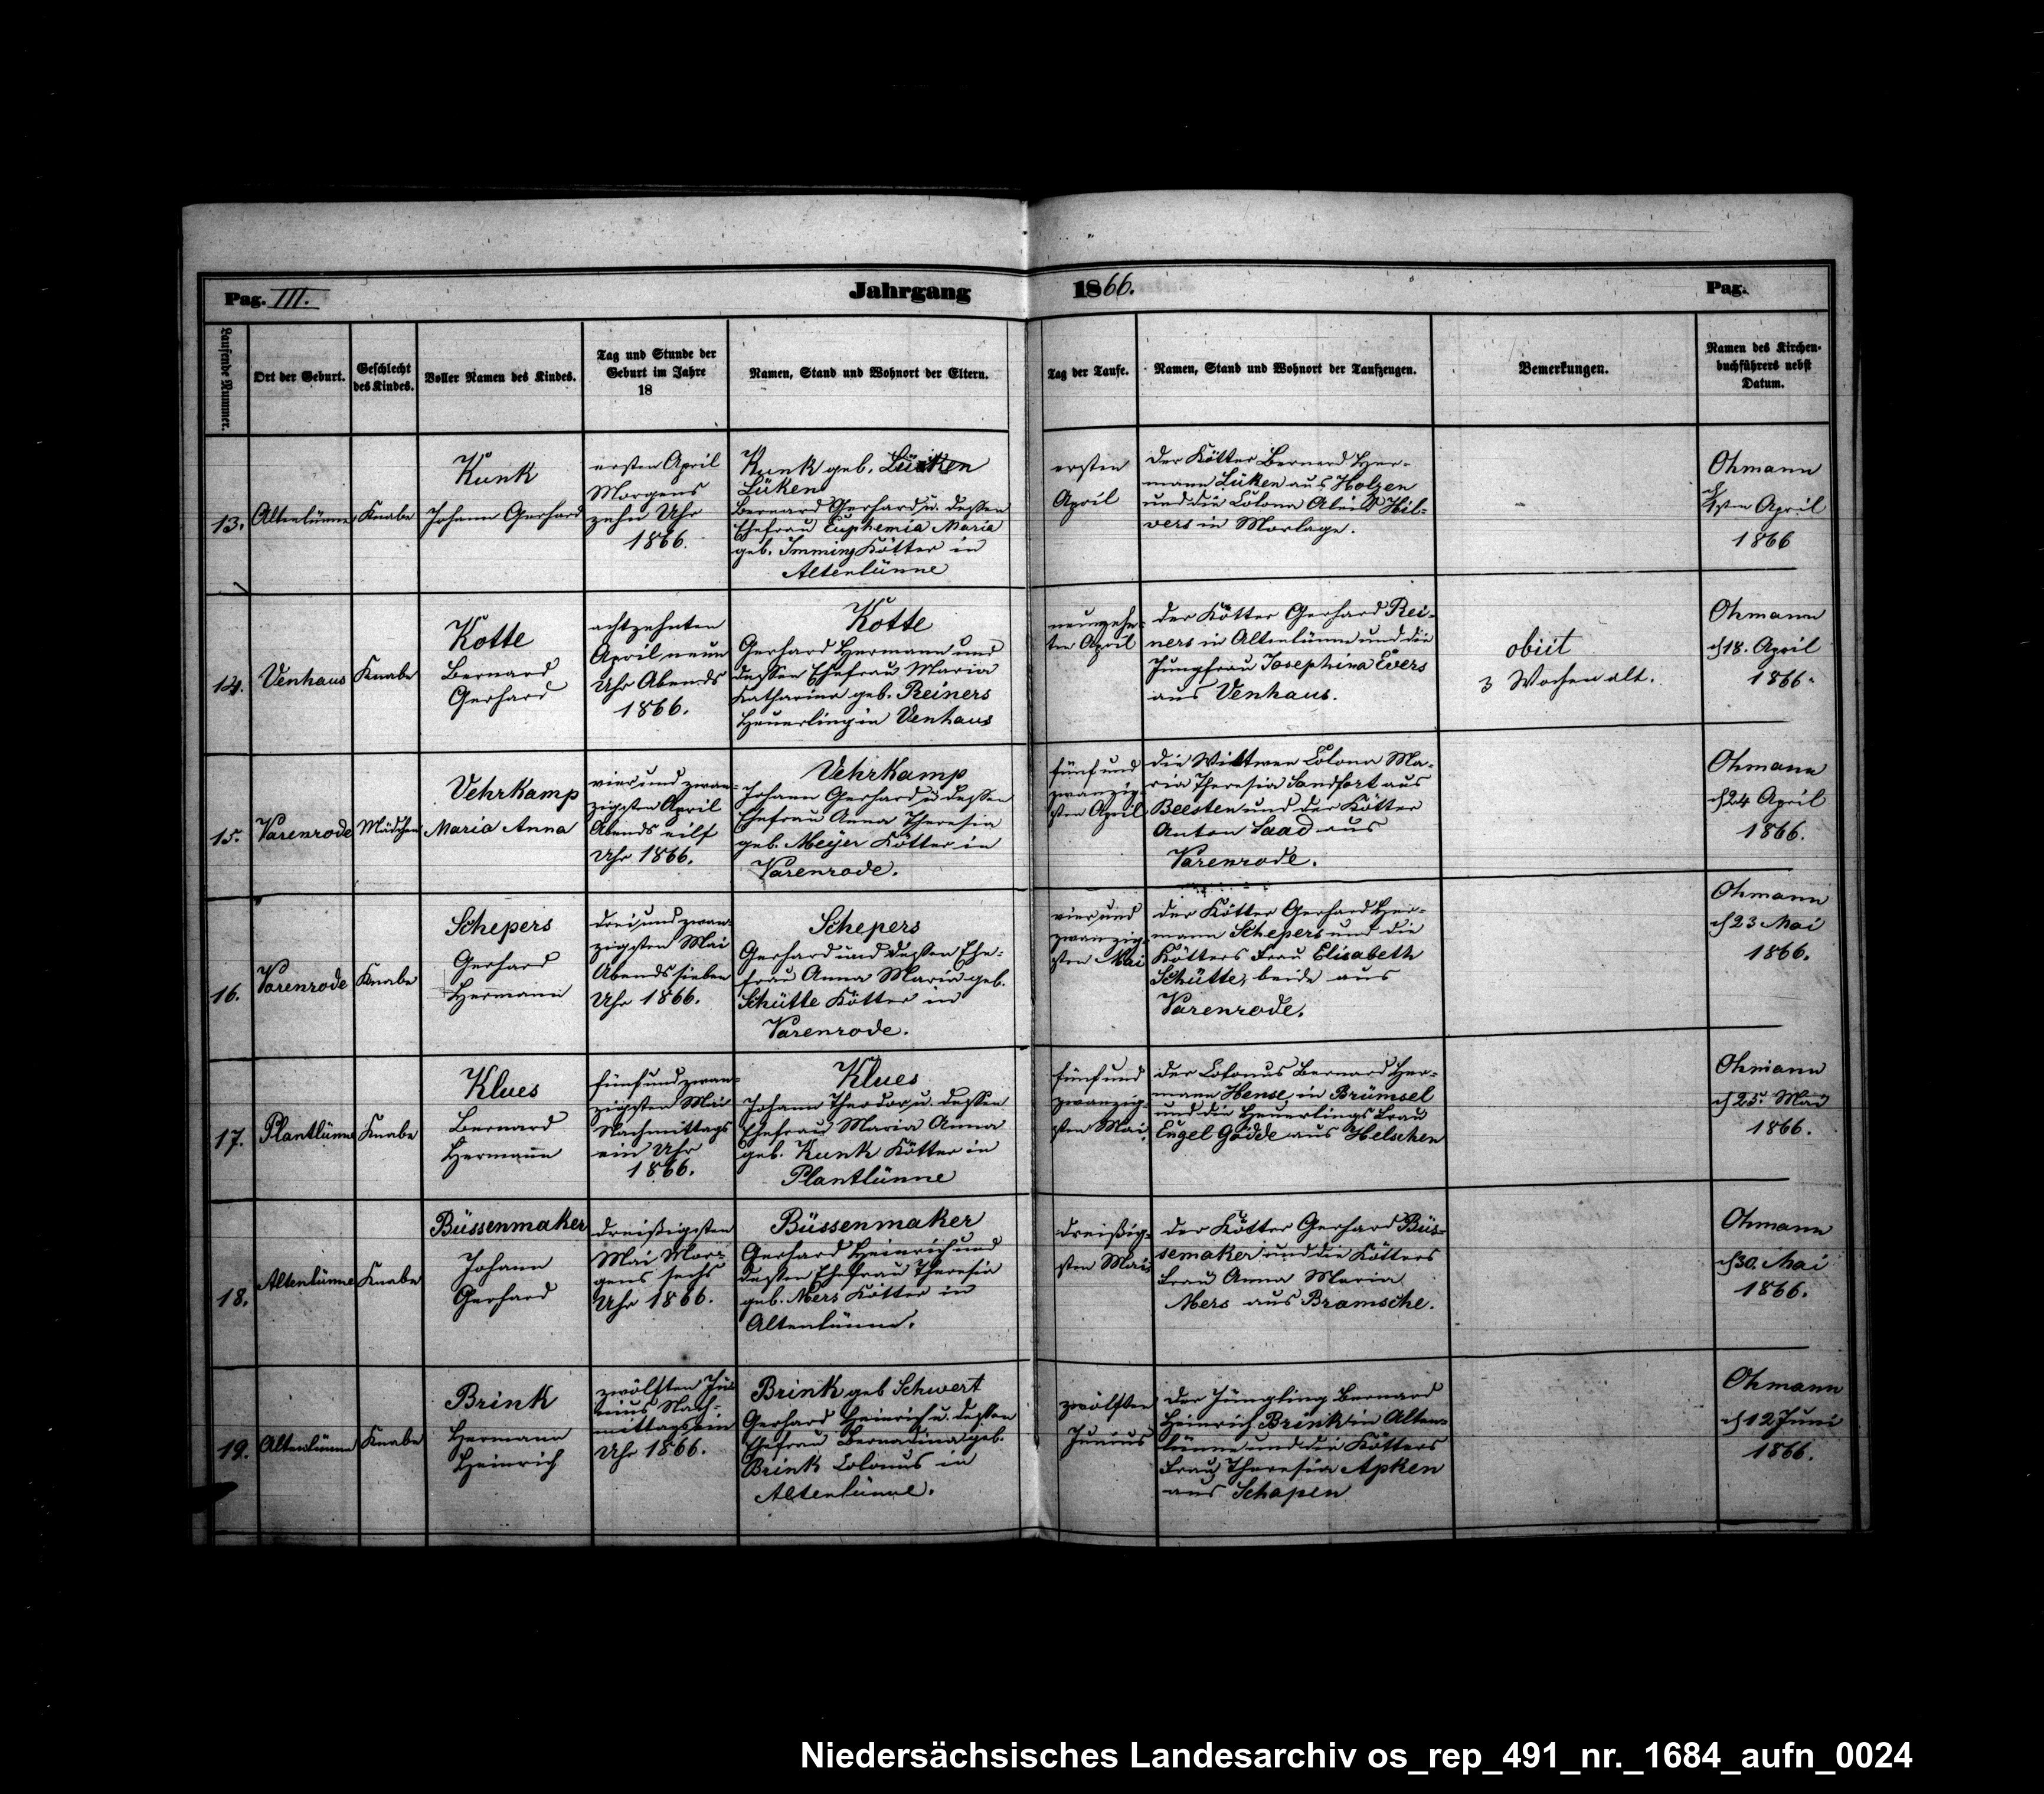 Pag. III.
Jahrgang
1866.
Pag.
Laufende Nummer.
Ort der Geburt.
Geschlecht
des Kindes.
Voller Namen des Kindes.
Tag und Stunde der
Geburt im Jahre
18
Namen, Stand und Wohnort der Eltern.
Tag der Taufe.
Namen, Stand und Wohnort der Taufzeugen.
Bemerkungen.
Namen des Kirchen-
buchführers nebst
Datum.
13.
Altenlünne
Knabe
Kunk
Johann Gerhard
ersten April
Morgens
zehn Uhr
1866.
Kunk geb.
Lüken
Bernard Gerhard u. dessen
Ehefrau Euphemia Maria
geb. Imming Kötter in
Altenlünne
ersten
April
der Kötter Bernard Her-
mann Lüken aus Holzen
und die Colona Aleid Hil-
vers in Morlage.
Ohmann
April
1866
14.
Venhaus
Knabe
Kotte
Bernard
Gerhard
achtzehnten
April neun
Uhr Abends
1866.
Kotte
Gerhard Hermann und
dessen Ehefrau Maria
Katharina geb. Reiners
Heuerling in Venhaus
neunzehn-
ten April
der Kötter Gerhard Rei-
ners in Altenlünne und die
Jungfrau Josephina Evers
aus Venhaus.
obiit
3 Wochen alt.
Ohmann
d 18. April
1866.
15.
Varenrode
Mädchen
Vehrkamp
Maria Anna
vier und zwan-
zigsten April
Abends eilf
Uhr 1866.
Vehrkamp
Johann Gerhard u dessen
Ehefrau Anna Theresia
geb. Meyer Kötter in
Varenrode.
fünf und
zwanzig-
sten April
die Wittwe Colona Ma-
ria Theresia Sandfort aus
Beesten und der Kötter
Anton Saad aus
Varenrode.
Ohmann
d 24 April
1866.
16.
Varenrode
Knabe
Schepers
Gerhard
Hermann
drei und zwan-
zigsten Mai
Abends sieben
Uhr 1866.
Schepers
Gerhard und dessen Ehe-
frau Anna Maria geb.
Schütte Kötter in
Varenrode.
vier und
zwanzig-
sten Mai
der Kötter Gerhard Her-
mann Schepers und die
Kötters Frau Elisabeth
Schütte, beide aus
Varenrode.
Ohmann
d 23 Mai
1866.
17.
Plantlünne
Knabe
Klues
Bernard
Hermann
fünf und zwan-
zigsten Mai
Nachmittags
ein Uhr
1866.
Klues
Johann Theodor u. dessen
Ehefrau Maria Anna
geb. Kunk Kötter in
Plantlünne
fünf und
zwanzig-
sten Mai
der Colonus Bernard Her-
mann Hense in Brümsel
und die Heuerlings Frau
Engel Gödde aus Helschen
Ohmann
d 25. Mai
1866.
18.
Altenlünne
Knabe
Büssenmaker
Johann
Gerhard
dreißigsten
Mai Mor-
gens sechs
Uhr 1866.
Büssenmaker
Gerhard Heinrich und
dessen Ehefrau Theresia
geb. Mers Kötter in
Altenlünne.
dreißig-
sten Mai
der Kötter Gerhard Büs-
semaker und die Kötters
Frau Anna Maria
Mers aus Bramsche.
Ohmann
d 30. Mai
1866.
19.
Altenlünne
Knabe
Brink
Hermann
Heinrich
zwölften Ju-
nius Nach-
mittags ein
Uhr 1866.
Brink geb Schwert
Gerhard Heinrich u. dessen
Ehefrau Bernadina geb.
Brink Colonus in
Altenlünne.
zwölften
Junius
der Jüngling Bernard
Heinrich Brink in Alten-
lünne und die Kötters
Frau Theresia Apken
aus Schapen
Ohmann
d 12 Juni
1866.
Niedersächsisches Landesarchiv os_rep_491_nr._1684_aufn_0024